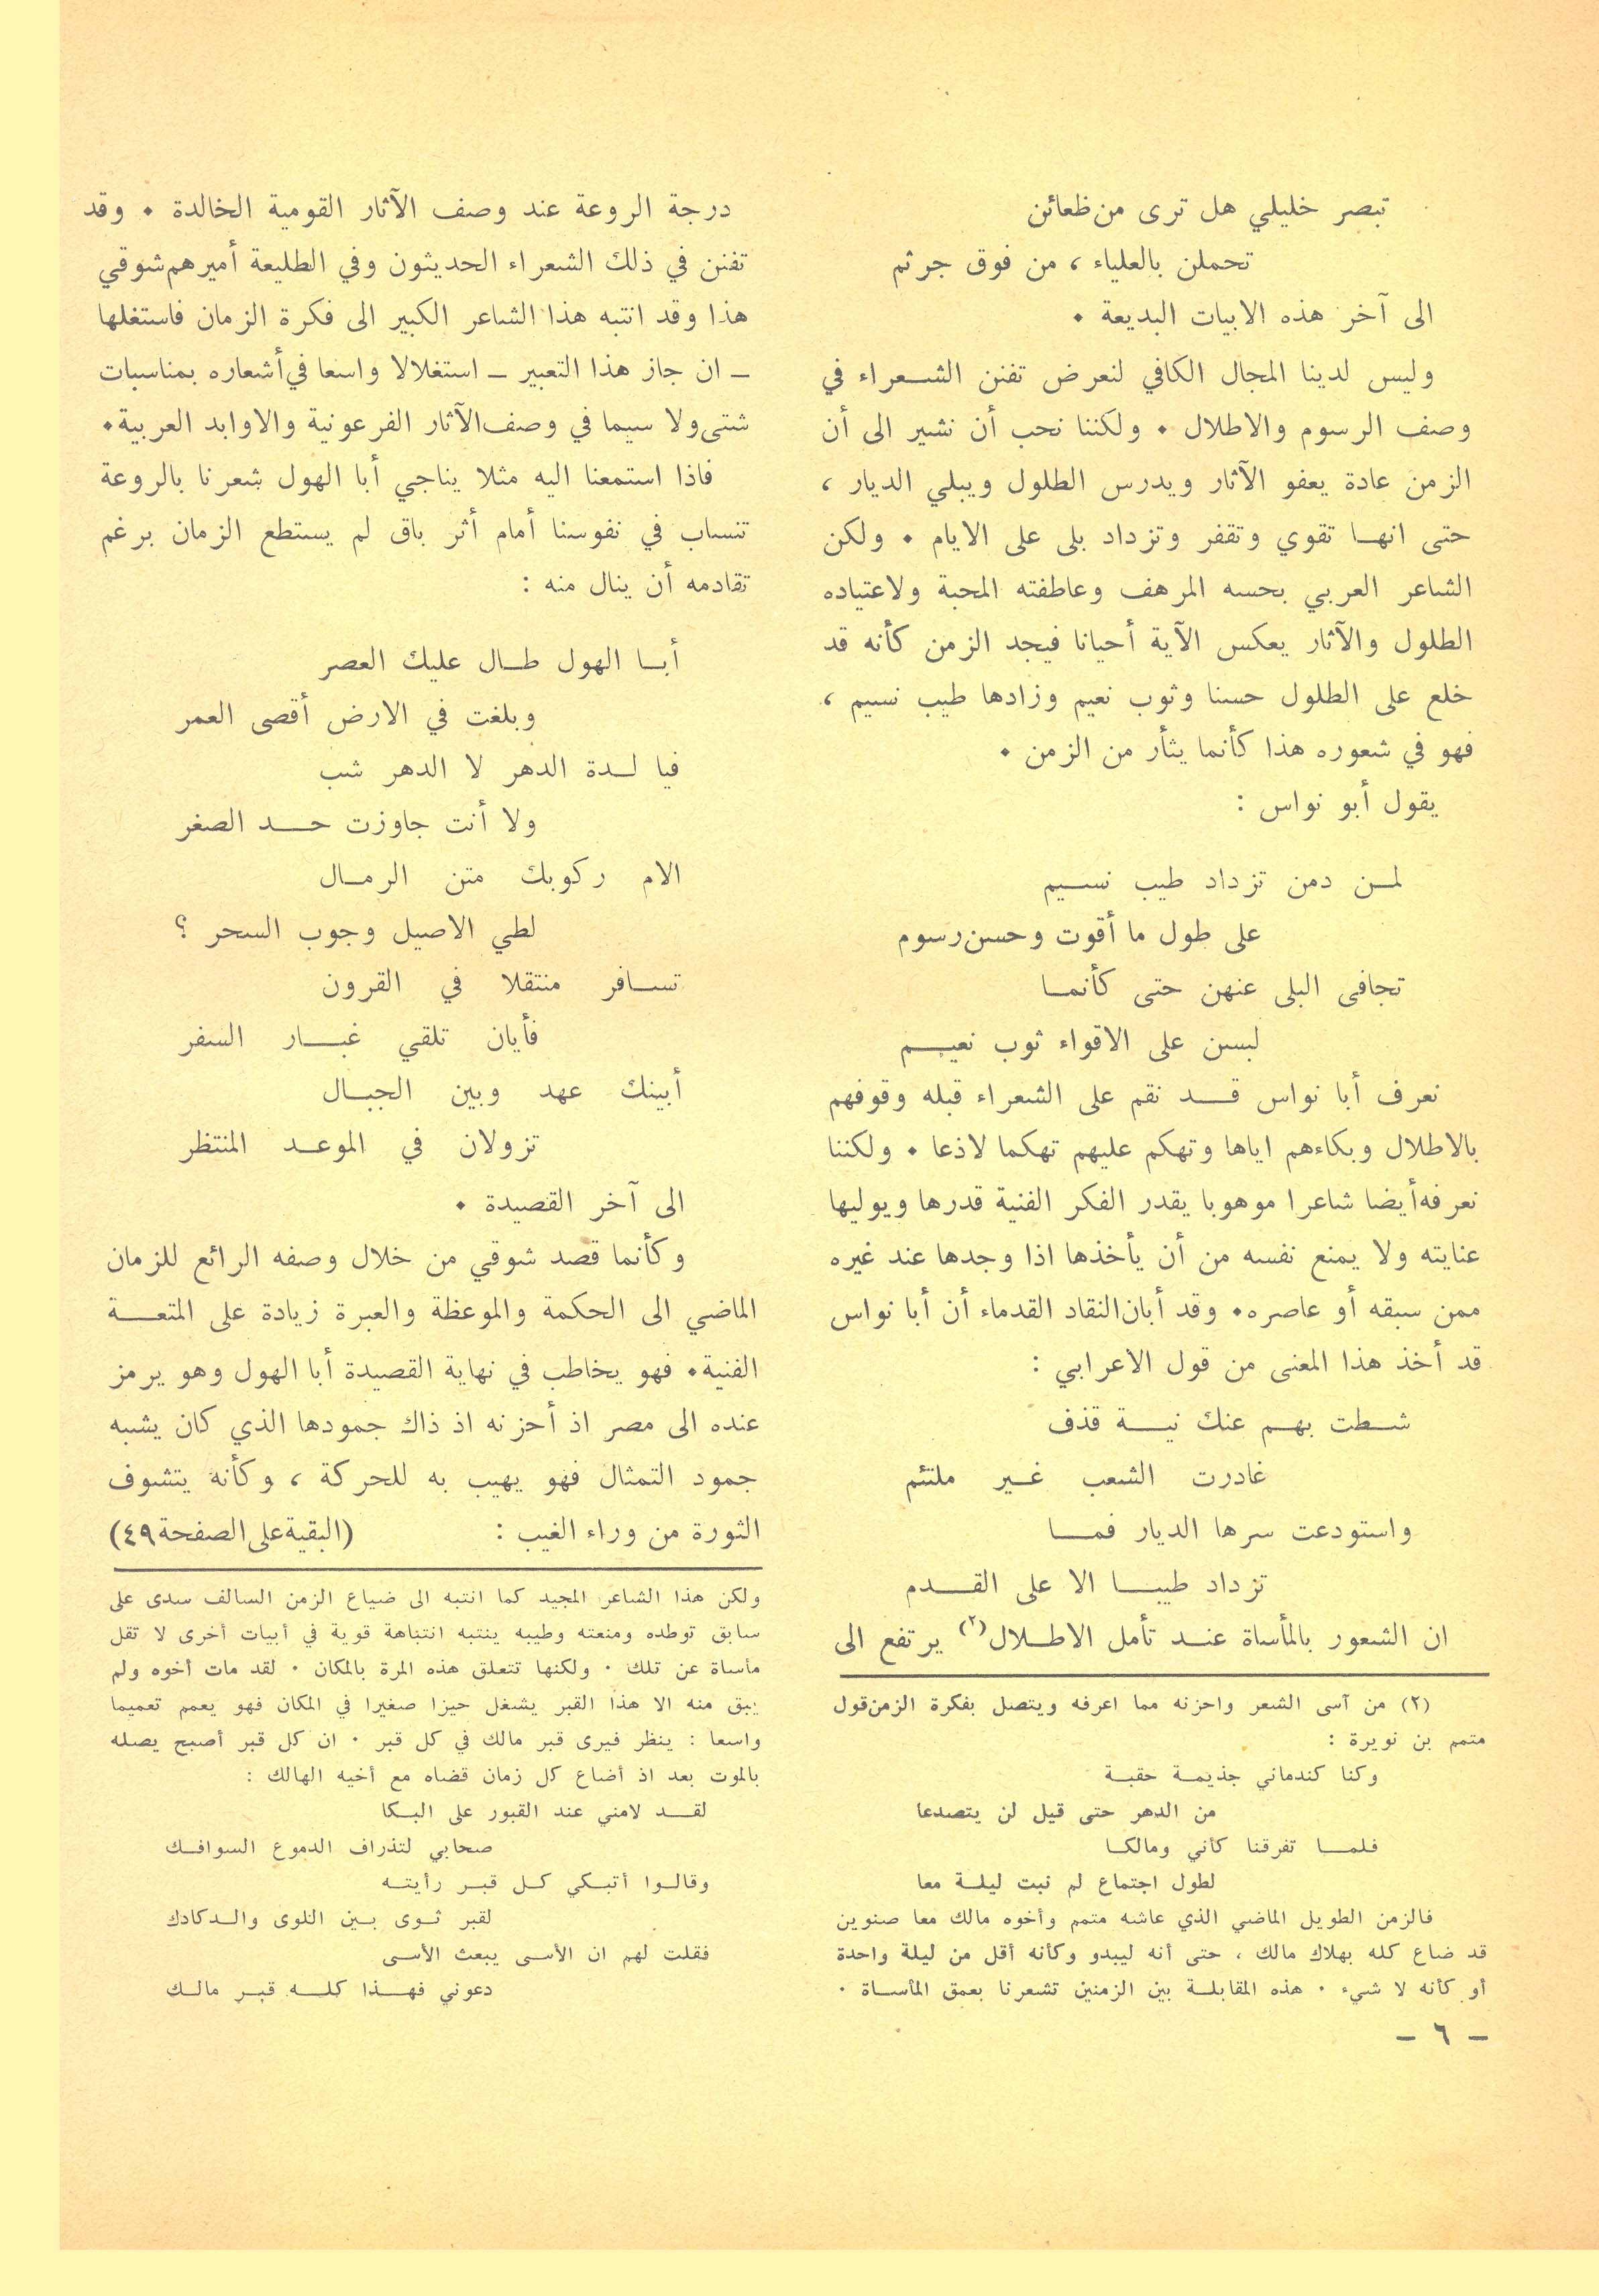 تبصر خليلي هل ترى من ظعائن
تحملن بالعلياء ، من فوق جرثم
الى آخر هذه الابيات البديعة .
وليس لدينا المجال الكافي لنعرض تفنن الشعراء في
وصف الرسوم والاطلال . ولكننا نحب أن نشير الى أن
الزمن عادة يعفو الآثار ويدرس الطلول ويبلي الديار ،
حتى انها تقوي وتقفر وتزداد بلى على الايام . ولكن
الشاعر العربي بحسه المرهف وعاطفته المحبة ولاعتياده
الطلول والآثار يعكس الآية أحيانا فيجد الزمن كأنه قد
خلع على الطلول حسنا وثوب نعيم وزادها طيب نسيم ،
فهو في شعوره هذا كأنما يثأر من الزمن .
يقول أبو نواس :
لمن دمن تزداد طيب نسيم
على طول ما أقوت وحسن رسوم
تجافى البلى عنهن حتى كأنما
لبسن على الاقواء ثوب نعيم
نعرف أبا نواس قد نقم على الشعراء قبله وقوفهم
بالاطلال وبكاءهم اياها وتهكم عليهم تهكما لاذعا . ولكننا
نعرفه أيضا شاعرا موهوبا يقدر الفكر الفنية قدرها ويوليها
عنايته ولا يمنع نفسه من أن يأخذها اذا وجدها عند غيره
ممن سبقه أو عاصره. وقد أبان النقاد القدماء أن أبا نواس
قد أخذ هذا المعنى من قول الاعرابي :
شطت بهم عنك نية قذف
غادرت الشعب غير ملتئم
واستودعت سرها الديار فما
تزداد طيبا الا على القدم
ان الشعور بالمأساة عند تأمل الاطلال(٢) يرتفع الى
(٢) من آسى الشعر واحزنه مما اعرفه ويتصل بفكرة الزمن قول
متمم بن نويرة :
وكنا كندماني جذيمة حقبة
من الدهر حتى قيل لن يتصدعا
فلما تفرقنا كأني ومالكا
لطول اجتماع لم نبت ليلة معا
فالزمن الطويل الماضي الذي عاشه متمم وأخوه مالك معا صنوين
قد ضاع كله بهلاك مالك ، حتى أنه ليبدو وكأنه أقل من ليلة واحدة
أو كأنه لا شيء . هذه المقابلة بين الزمنين تشعرنا بعمق المأساة .
درجة الروعة عند وصف الآثار القومية الخالدة . وقد
تفنن في ذلك الشعراء الحديثون وفي الطليعة أميرهم شوقي
هذا وقد انتبه هذا الشاعر الكبير الى فكرة الزمان فاستغلها
– ان جاز هذا التعبير – استغلالا واسعا في أشعاره بمناسبات
شتى ولا سيما في وصف الآثار الفرعونية والاوابد العربية.
فاذا استمعنا اليه مثلا يناجي أبا الهول شعرنا بالروعة
تنساب في نفوسنا أمام أثر باق لم يستطع الزمان برغم
تقادمه أن ينال منه :
أبا الهول طال عليك العصر
وبلغت في الارض أقصى العمر
فيا لدة الدهر لا الدهر شب
ولا أنت جاوزت حد الصغر
الام ركوبك متن الرمال
لطي الاصيل وجوب السحر ؟
تسافر منتقلا في القرون
فأيان تلقي غبار السفر
أبينك عهد وبين الجبال
تزولان في الموعد المنتظر
الى آخر القصيدة .
وكأنما قصد شوقي من خلال وصفه الرائع للزمان
الماضي الى الحكمة والموعظة والعبرة زيادة على المتعة
الفنية. فهو يخاطب في نهاية القصيدة أبا الهول وهو يرمز
عنده الى مصر اذ أحزنه اذ ذاك جمودها الذي كان يشبه
جمود التمثال فهو يهيب به للحركة ، وكأنه يتشوف
الثورة من وراء الغيب : (البقية على الصفحة ٤٩)
ولكن هذا الشاعر المجيد كما انتبه الى ضياع الزمن السالف سدى على
سابق توطده ومنعته وطيبه ينتبه انتباهة قوية في أبيات أخرى لا تقل
مأساة عن تلك . ولكنها تتعلق هذه المرة بالمكان . لقد مات أخوه ولم
يبق منه الا هذا القبر يشغل حيزا صغيرا في المكان فهو يعمم تعميما
واسعا : ينظر فيرى قبر مالك في كل قبر . ان كل قبر أصبح يصله
بالموت بعد اذ أضاع كل زمان قضاه مع أخيه الهالك :
لقد لامني عند القبور على البكا
صحابي لتذراف الدموع السوافك
وقالوا أتبكي كل قبر رأيته
لقبر ثوى بين اللوى والدكادك
فقلت لهم ان الأسى يبعث الأسى
دعوني فهذا كله قبر مالك
– ٦ –